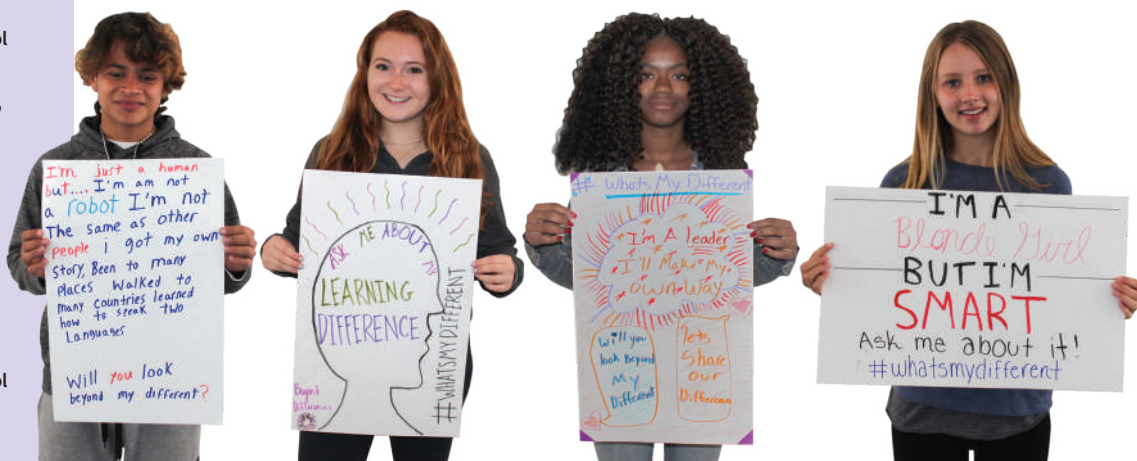 ol
ol
I'm just a human
but.... I'm am not
a robot I'm not
The same as other
people i got my own
story, Been to many
Places Walked to
many countries learned
how to speak two
Languages
Will you look
beyond my different?
ASK ME ABOUT MY
LEARNING
DIFFERENCE
#WHATSMYDIFFERENT
Beyond
Differences
# Whats My Different
I'm A leader
I'll Make My
own Way
Will you
look Beyond
My
Different
lets
Share
our
Differences
I'M A
Blonde Girl
BUT I'M
SMART
Ask me about it!
#whatsmydifferent